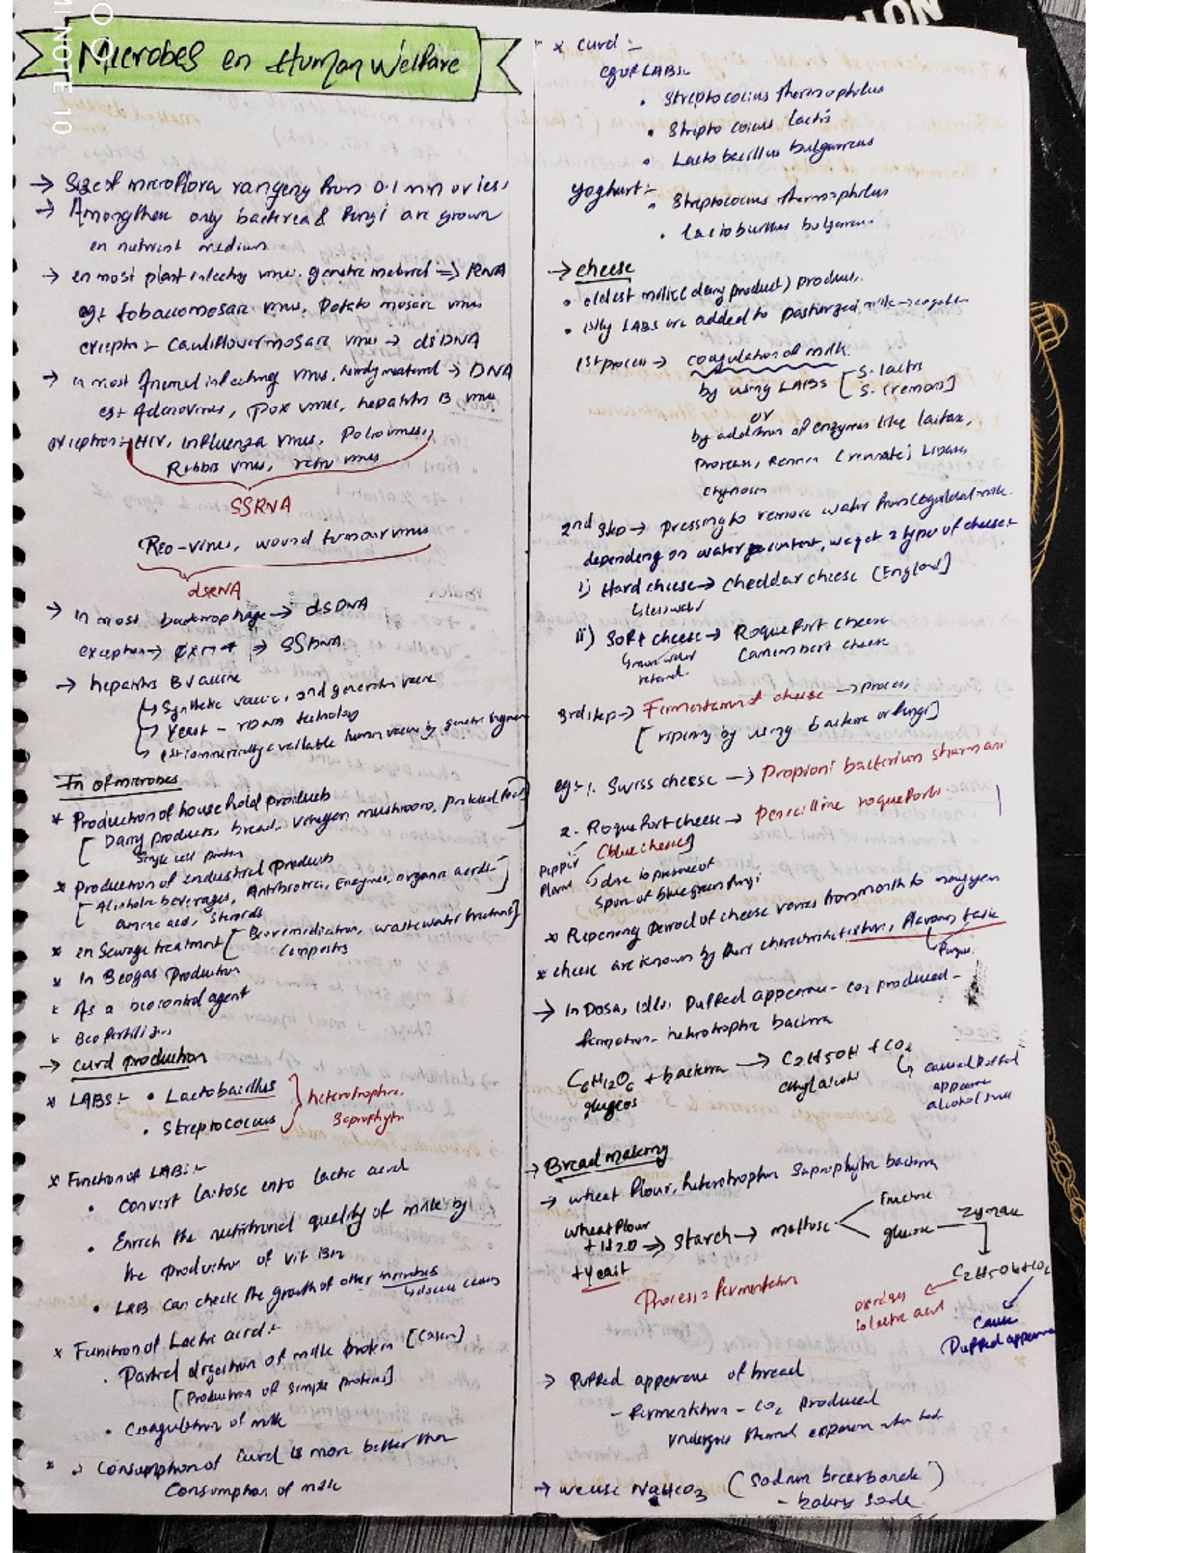 Microbes in Human Welfare
→ Size of microflora ranging from 0.1 mm or less
→ Among these only bacteria & fungi are grown
in nutrient medium
→ in most plant infecting virus, genetic material → RNA
eg: tobaccomosaic virus, Potato mosaic virus
exception:- Cauliflower mosaic virus → dsDNA
→ in most Animal infecting virus, material → DNA
eg:- Adenovirus, pox virus, hepatitis B virus
exception:- HIV, influenza virus, Poliovirus,
Rabbis virus, retro virus
SSRNA
Reo-virus, wound tumour virus
dsRNA
→ in most bacteriophage → dsDNA
exception → ϕ × 174 → SSDNA
→ hepatitis B vaccine
↳ Synthetic vaccine, 2nd generation vaccine
↳ Yeast - rDNA technology
↳ 1st commercially available human vaccine by genetic
In of microbes
* Production of house hold products
[Dairy products, bread, vinegar, mushroom,
Single cell protein
* Production of industrial products
[Alcoholic beverages, Antibiotics, Enzymes, organic acids
amino acid, steroids
* in Sewage treatment [Bioremediation, waste water
Composts
* In Biogas Production
* As a biocontrol agent
* Biofertilizers
→ Curd production
* LABS:- • Lactobacillus
• Streptococcus
heterotrophic.
Saprophytic
* Function of LAB:-
• Convert lactose into lactic acid
• Enrich the nutritional quality of milk by
the production of vit B12
• LAB can check the growth of other microbes
↳ disease causing
* Function of Lactic acid:-
• Partial digestion of milk protein [Casein]
[Production of simple proteins]
• Coagulation of milk
* Consumption of Curd is more better than
Consumption of milk
* Curd :-
eg of LABS:-
• Streptococcus thermophilus
• Strepto coccus lactis
• Lacto bacillus bulgaricus
Yoghurt:-
• Streptococcus thermophilus
• Lactobacillus bulgaricus
→ cheese
• oldest milk (dairy product) product.
• 1stly LABS are added to Pasturized milk →
1st process → coagulation of milk.
by using LABS [S. lactis
S. cremoris]
or
by addition of enzymes like lactase,
Protease, Rennin (rennate) Lipases
Chymosin
2nd Step → pressing to remove water from coagulated milk.
depending on water content, we get 2 types of cheeses
i) Hard cheese → Cheddar cheese [England]
↳ less water
ii) Soft cheese → Roque fort cheese
Camembert cheese
↳ more water
retained.
3rd step → Fermentation of cheese → process
[ripening by using bacteria or fungi]
eg:- 1. Swiss cheese → Propioni bacterium sharmani
2. Roque fort cheese → Penicillium roqueforti
(blue cheese)
↳ due to presence of
Spores of blue green fungi
* Ripening period of cheese varies from month to
* cheese are known by their characteristics, flavour, taste
→ In Dosa, Idli, Puffed appearance - CO2 produced -
fermentation - heterotrophic bacteria
C6H12O6 + bacteria → C2H5OH + CO2
glucose
ethyl alcohol
↳ caused puffed
appearance
alcohol smell
→ Bread making
→ wheat flour, heterotrophic Saprophytic bacteria
wheat flour
+ H2O → Starch → maltose
+ yeast
fructose
glucose
zymase
C2H5OH + CO2
Process = fermentation
oxidises
to lactic acid
Cause
Puffed appearance
→ Puffed appearance of bread
- fermentation - CO2 produced
undergoes thermal expansion
→ we use NaHCO3 (Sodium bicarbonate)
- baking soda